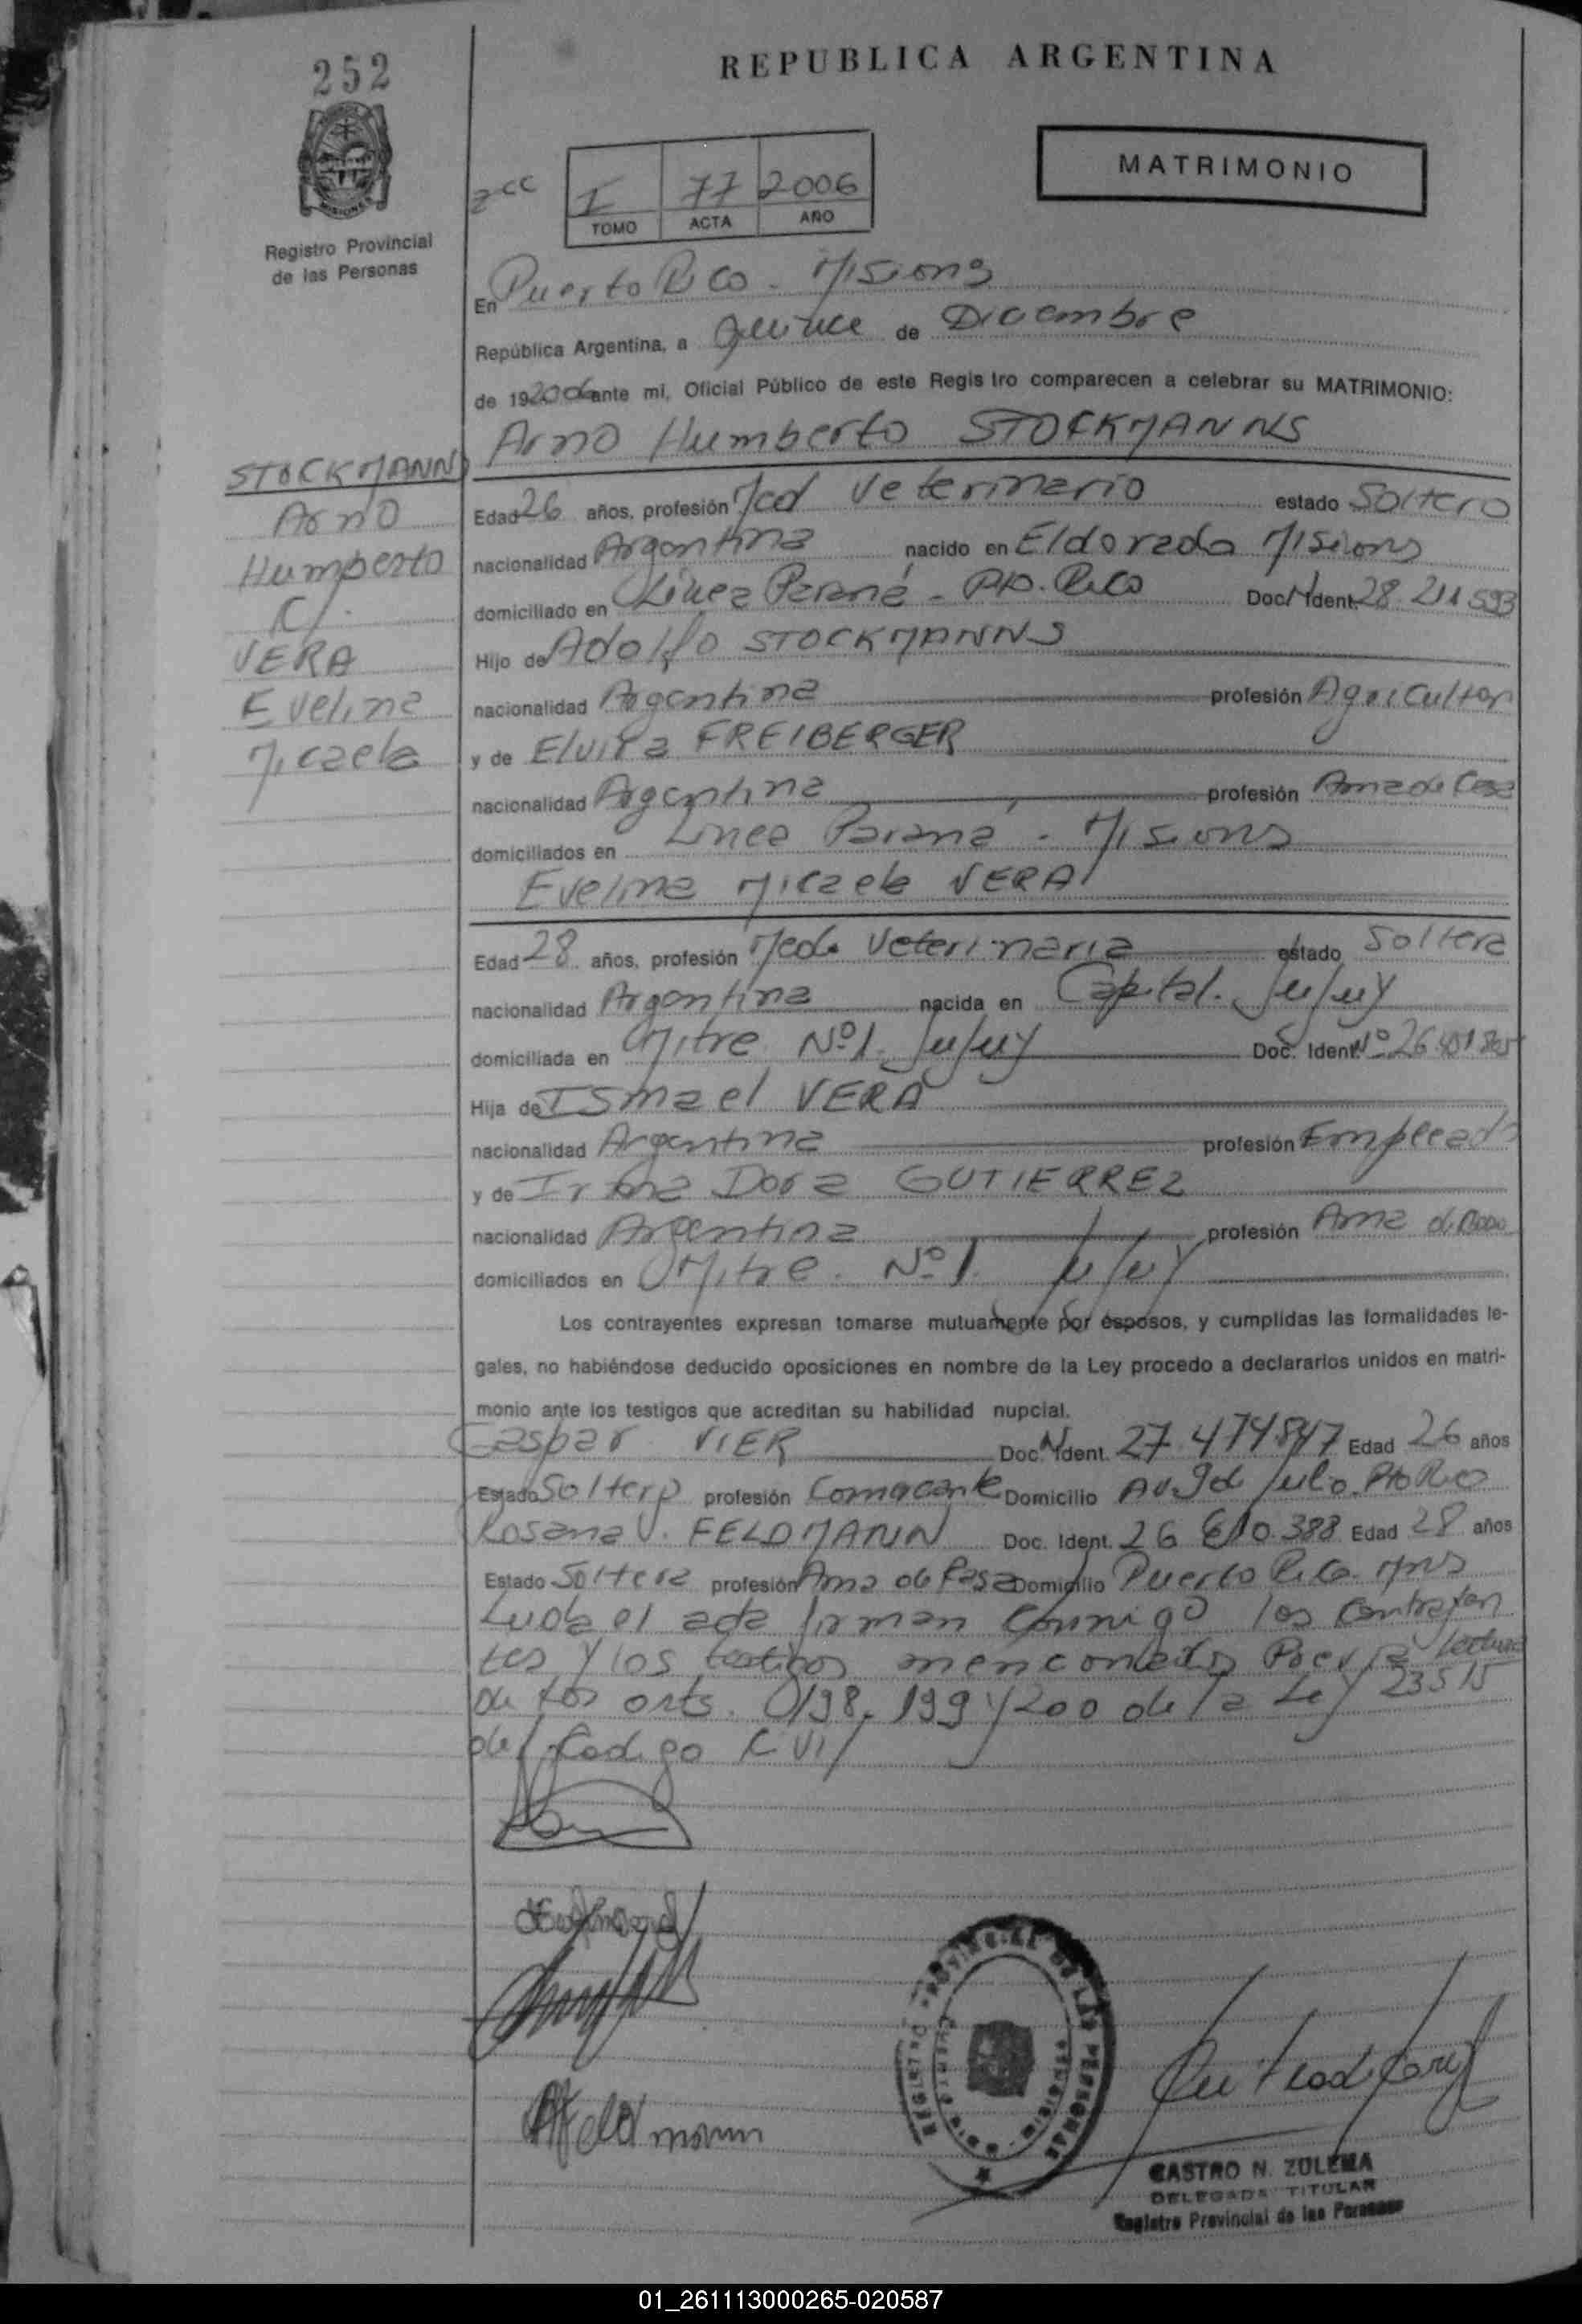 252
REPUBLICA ARGENTINA
MATRIMONIO
MISIONES
Registro Provincial
de las Personas
zcc
I 77 2006
TOMO ACTA AÑO
En Puerto Rico - Misions
República Argentina, a quince de Diciembre
de 192006 ante mi, Oficial Público de este Regis tro comparecen a celebrar su MATRIMONIO:
Arno Humberto STOCKMANNS
STOCKMANNS
Arno
Humberto
C/
VERA
Evelina
Micaela
Edad 26 años, profesión Med Veterinario estado Soltero
nacionalidad Argentina nacido en Eldorado Misions
domiciliado en Línea Paraná - Pto. Rico Doc. Ident. 28.211.593
Hijo de Adolfo STOCKMANNS
nacionalidad Argentina profesión Agricultor
y de Elvira FREIBERGER
nacionalidad Argentina profesión Ama de Casa
domiciliados en Línea Paraná - Misions
Evelina Micaela VERA
Edad 28 años, profesión Med. Veterinaria estado Soltera
nacionalidad Argentina nacida en Capital. Jujuy
domiciliada en Mitre Nº 1. Jujuy Doc. Ident. Nº
Hija de Ismael VERA
nacionalidad Argentina profesión Empleado
y de Irma Dora GUTIERREZ
nacionalidad Argentina profesión Ama de
domiciliados en Mitre. Nº 1. Jujuy
Los contrayentes expresan tomarse mutuamente por esposos, y cumplidas las formalidades le-
gales, no habiéndose deducido oposiciones en nombre de la Ley procedo a declararlos unidos en matri-
monio ante los testigos que acreditan su habilidad nupcial.
Gaspar VIER Doc. Ident. 27.474.847 Edad 26 años
Estado Soltero profesión Comerciante Domicilio Av. 9 de Julio. Pto Rico
Rosana V. FELDMANN Doc. Ident. 26 610.388 Edad 28 años
Estado Soltera profesión Ama de Casa Domicilio Puerto Rico. Mns
Leida el acta firman conmigo los contrayen
tes y los testigos mencionados Previa lectura
de los arts. 198, 199 y 200 de la Ley 23515
del Codigo Civil
Feldmann
REGISTRO PROVINCIAL DE LAS PERSONAS
CASTRO N. ZULEMA
DELEGADA TITULAR
Registro Provincial de las Personas
01_261113000265-020587